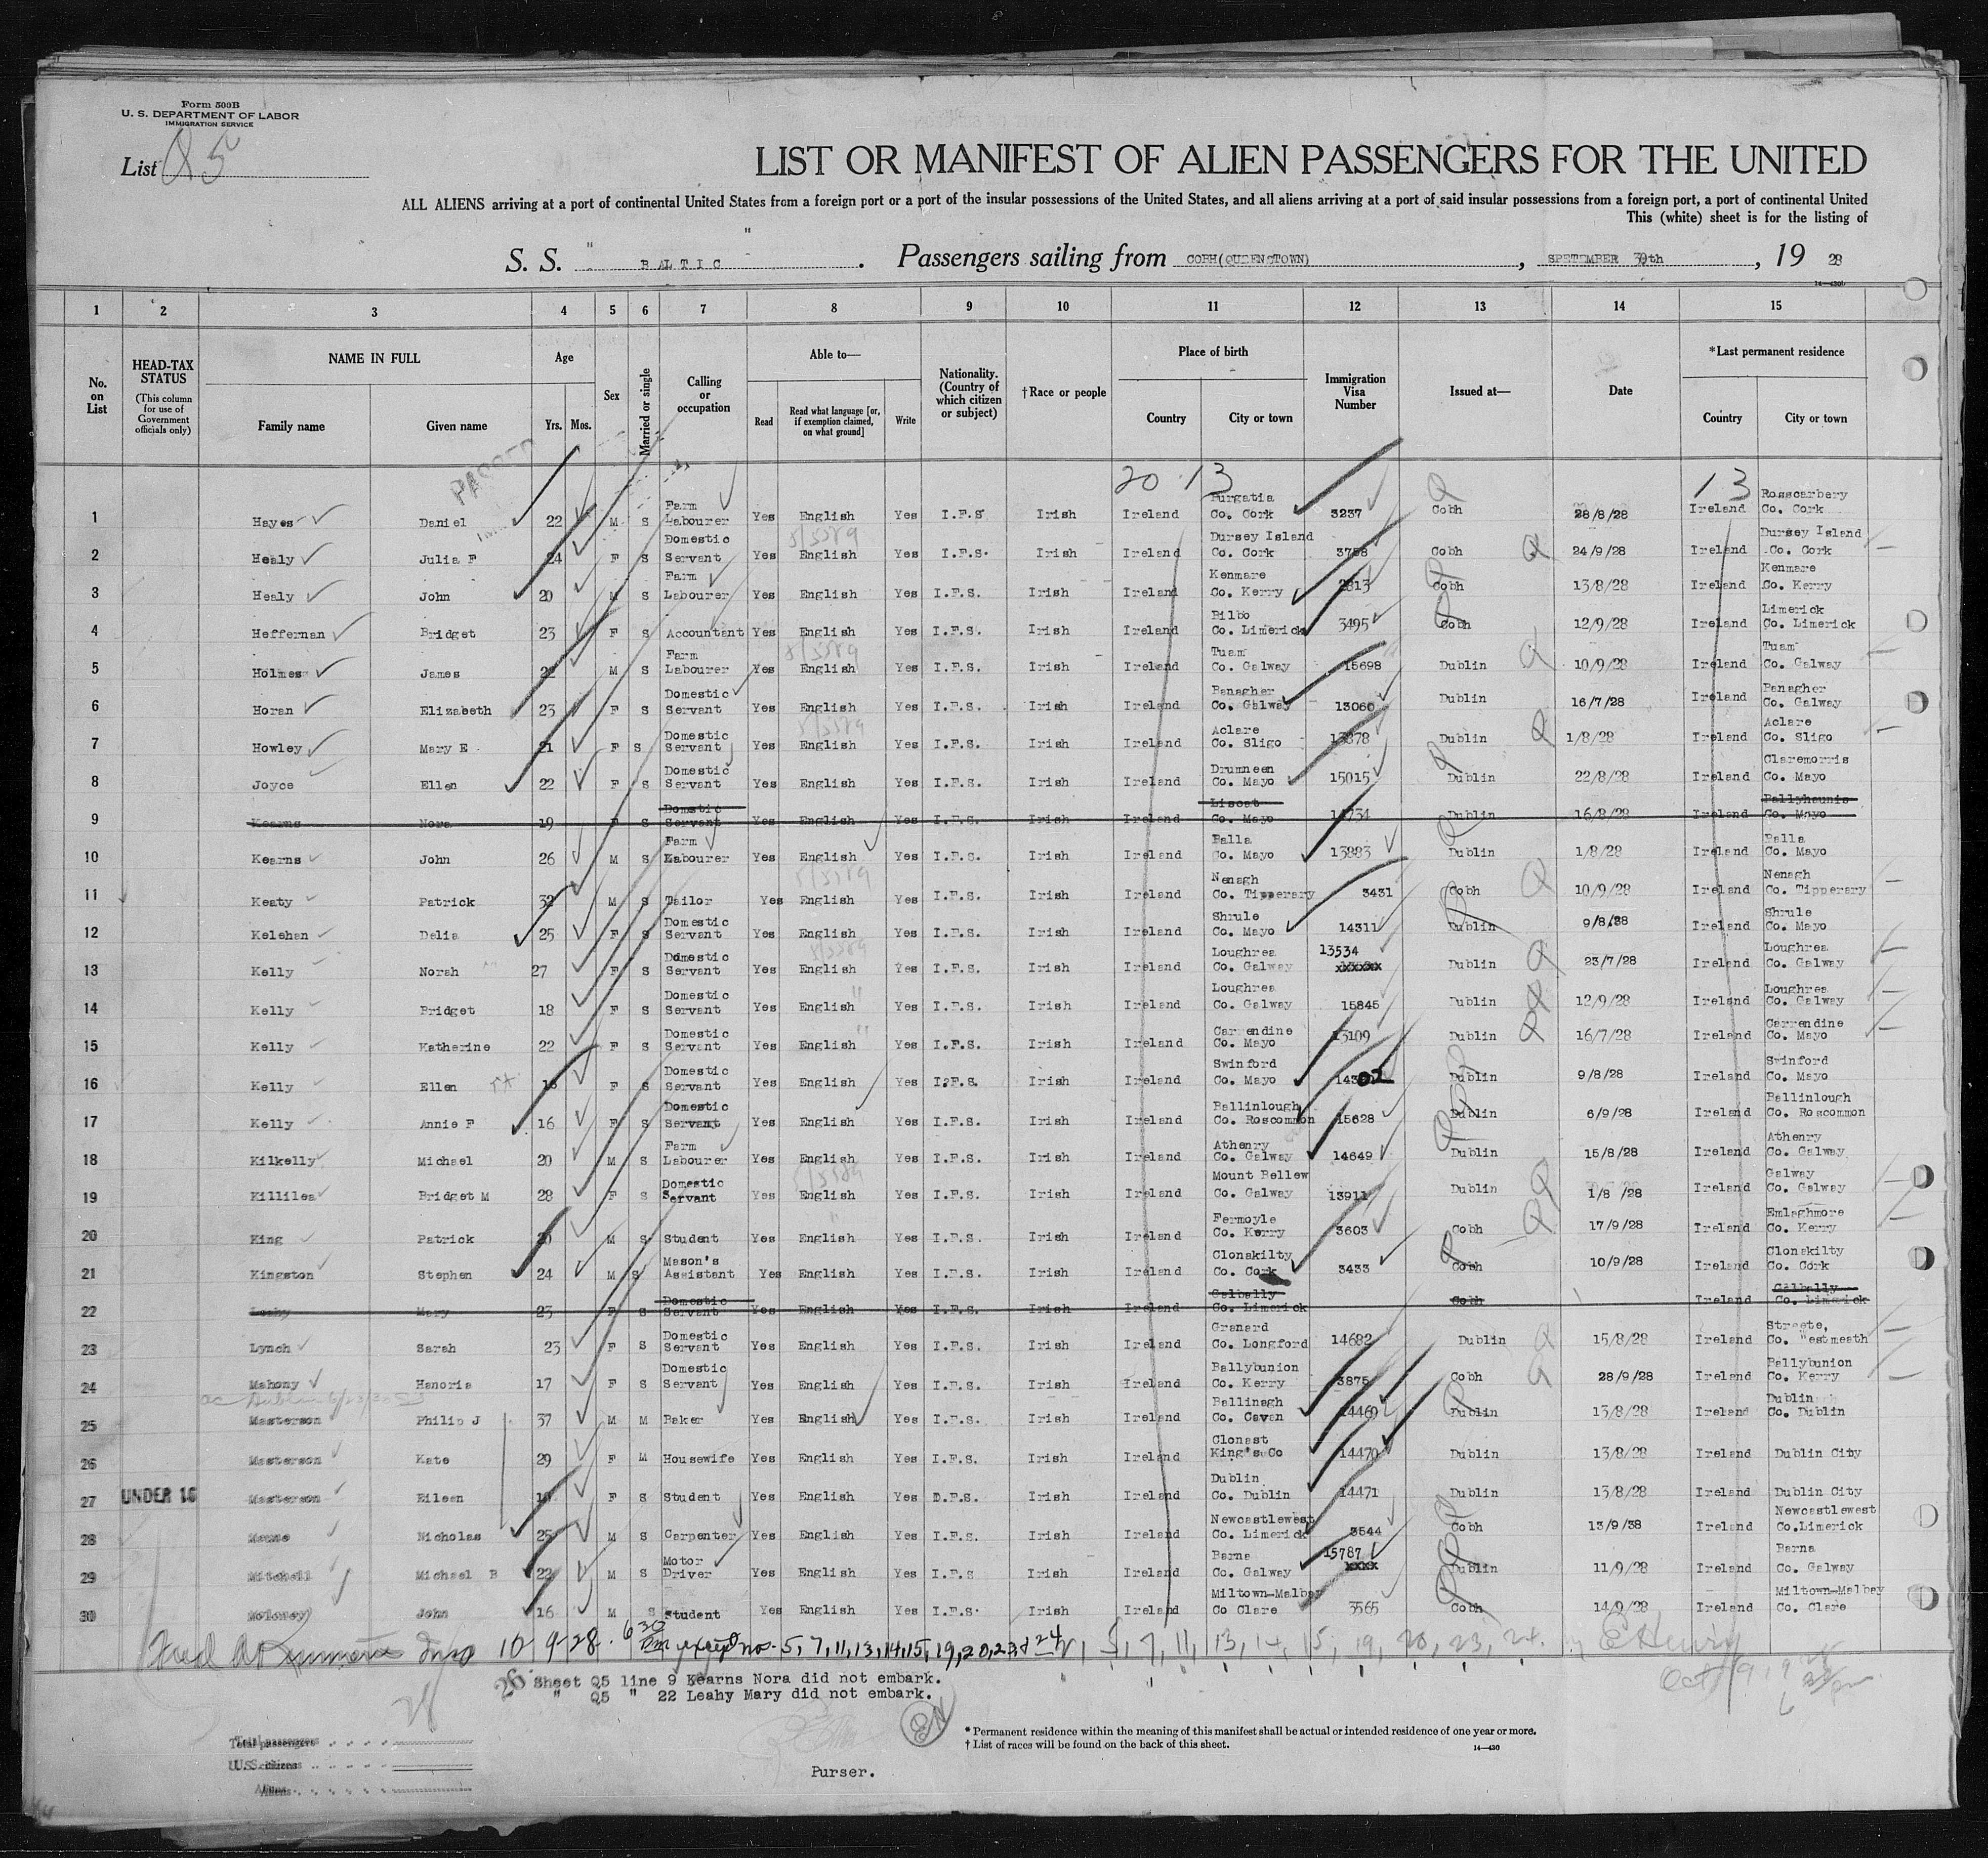 Form 500B
U. S. DEPARTMENT OF LABOR
IMMIGRATION SERVICE
List Q5
LIST OR MANIFEST OF ALIEN PASSENGERS FOR THE UNITED
ALL ALIENS arriving at a port of continental United States from a foreign port or a port of the insular possessions of the United States, and all aliens arriving at a port of said insular possessions from a foreign port, a port of continental United
This (white) sheet is for the listing of
S. S. " BALTIC " . Passengers sailing from COBH(QUEENSTOWN) , SPETEMBER 30th , 19 28
1 2 3 4 5 6 7 8 9 10 11 12 13 14 15
No. on List HEAD-TAX STATUS (This column for use of Government officials only) NAME IN FULL Family name Given name Age Yrs. Mos. Sex Married or single Calling or occupation Able to— Read Read what language [or, if exemption claimed, on what ground] Write Nationality. (Country of which citizen or subject) †Race or people Place of birth Country City or town Immigration Visa Number Issued at— Date *Last permanent residence Country City or town
20 13 13
1 Hayes Daniel 22 M S Farm Labourer Yes English Yes I.F.S Irish Ireland Burgatia Co. Cork 3237 Cobh 28/8/28 Ireland Rosscarbery Co. Cork
2 Healy Julia F 24 F S Domestic Servant Yes English Yes I.F.S. Irish Ireland Dursey Island Co. Cork 3758 Cobh 24/9/28 Ireland Dursey Island Co. Cork
3 Healy John 20 M S Farm Labourer Yes English Yes I.F.S. Irish Ireland Kenmare Co. Kerry 2813 Cobh 13/8/28 Ireland Kenmare Co. Kerry
4 Heffernan Bridget 23 F S Accountant Yes English Yes I.F.S. Irish Ireland Bilbo Co. Limerick 3495 Cobh 12/9/28 Ireland Limerick Co. Limerick
5 Holmes James 22 M S Farm Labourer Yes English Yes I.F.S. Irish Ireland Tuam Co. Galway 15698 Dublin 10/9/28 Ireland Tuam Co. Galway
6 Horan Elizabeth 23 F S Domestic Servant Yes English Yes I.F.S. Irish Ireland Banagher Co. Galway 13060 Dublin 16/7/28 Ireland Banagher Co. Galway
7 Howley Mary E 21 F S Domestic Servant Yes English Yes I.F.S. Irish Ireland Aclare Co. Sligo 13878 Dublin 1/8/28 Ireland Aclare Co. Sligo
8 Joyce Ellen 22 F S Domestic Servant Yes English Yes I.F.S. Irish Ireland Drumneen Co. Mayo 15015 Dublin 22/8/28 Ireland Claremorris Co. Mayo
9 Kearns Nora 19 F S Domestic Servant Yes English Yes I.F.S. Irish Ireland Liscat Co. Mayo 14734 Dublin 16/8/28 Ireland Ballyhaunis Co. Mayo
10 Kearns John 26 M S Farm Labourer Yes English Yes I.F.S. Irish Ireland Balla Co. Mayo 13883 Dublin 1/8/28 Ireland Balla Co. Mayo
11 Keaty Patrick 32 M S Tailor Yes English Yes I.F.S. Irish Ireland Nenagh Co. Tipperary 3431 Cobh 10/9/28 Ireland Nenagh Co. Tipperary
12 Kelehan Delia 25 F S Domestic Servant Yes English Yes I.F.S. Irish Ireland Shrule Co. Mayo 14311 Dublin 9/8/28 Ireland Shrule Co. Mayo
13 Kelly Norah 27 F S Domestic Servant Yes English Yes I.F.S. Irish Ireland Loughrea Co. Galway 13534 xxxxxx Dublin 23/7/28 Ireland Loughrea Co. Galway
14 Kelly Bridget 18 F S Domestic Servant Yes English Yes I.F.S. Irish Ireland Loughrea Co. Galway 15845 Dublin 12/9/28 Ireland Loughrea Co. Galway
15 Kelly Katherine 22 F S Domestic Servant Yes English Yes I.F.S. Irish Ireland Carrendine Co. Mayo 13109 Dublin 16/7/28 Ireland Carrendine Co. Mayo
16 Kelly Ellen 18 F S Domestic Servant Yes English Yes I.F.S. Irish Ireland Swinford Co. Mayo 14302 Dublin 9/8/28 Ireland Swinford Co. Mayo
17 Kelly Annie F 16 F S Domestic Servant Yes English Yes I.F.S. Irish Ireland Ballinlough Co. Roscommon 15628 Dublin 6/9/28 Ireland Ballinlough Co. Roscommon
18 Kilkelly Michael 20 M S Farm Labourer Yes English Yes I.F.S. Irish Ireland Athenry Co. Galway 14649 Dublin 15/8/28 Ireland Athenry Co. Galway
19 Killilea Bridget M 28 F S Domestic Servant Yes English Yes I.F.S. Irish Ireland Mount Bellew Co. Galway 13911 Dublin 1/8 /28 Ireland Galway Co. Galway
20 King Patrick 20 M S Student Yes English Yes I.F.S. Irish Ireland Fermoyle Co. Kerry 3603 Cobh 17/9/28 Ireland Emlaghmore Co. Kerry
21 Kingston Stephen 24 M S Mason's Assistant Yes English Yes I.F.S. Irish Ireland Clonakilty Co. Cork 3433 Cobh 10/9/28 Ireland Clonakilty Co. Cork
22 Leahy Mary 23 F S Domestic Servant Yes English Yes I.F.S. Irish Ireland Galbally Co. Limerick Cobh Ireland Galbally Co. Limerick
23 Lynch Sarah 23 F S Domestic Servant Yes English Yes I.F.S. Irish Ireland Granard Co. Longford 14682 Dublin 15/8/28 Ireland Streete, Co. Westmeath
24 Mahony Hanoria 17 F S Domestic Servant Yes English Yes I.F.S. Irish Ireland Ballybunion Co. Kerry 3875 Cobh 28/9/28 Ireland Ballybunion Co. Kerry
25 Masterson Philip J 37 M M Baker Yes English Yes I.F.S. Irish Ireland Ballinagh Co. Cavan 14469 Dublin 13/8/28 Ireland Dublin Co. Dublin
26 Masterson Kate 29 F M Housewife Yes English Yes I.F.S. Irish Ireland Clonast King's Co 14470 Dublin 13/8/28 Ireland Dublin City
27 UNDER 16 Masterson Eileen 10 F S Student Yes English Yes D.F.S. Irish Ireland Dublin Co. Dublin 14471 Dublin 13/8/28 Ireland Dublin City
28 Meane Nicholas 25 M S Carpenter Yes English Yes I.F.S. Irish Ireland Newcastlewest Co. Limerick 3544 Cobh 13/9/38 Ireland Newcastlewest Co.Limerick
29 Mitchell Michael B 22 M S Motor Driver Yes English Yes I.F.S Irish Ireland Barna Co. Galway 15787 xxxx Dublin 11/9/28 Ireland Barna Co. Galway
30 Moloney John 16 M S Student Yes English Yes I.F.S. Irish Ireland Miltown-Malbay Co Clare 3565 Cobh 14/9/28 Ireland Miltown-Malbay Co. Clare
10-9-28. 630 except nos. 5, 7, 11, 13, 14, 15, 19, 20, 23, & 24 5, 7, 11, 13, 14, 15, 19, 20, 23, 24. E Henry
26 Sheet Q5 line 9 Kearns Nora did not embark.
" Q5 " 22 Leahy Mary did not embark.
* Permanent residence within the meaning of this manifest shall be actual or intended residence of one year or more.
† List of races will be found on the back of this sheet.
14—430
Total passengers
U.S. citizens
Aliens
Purser.